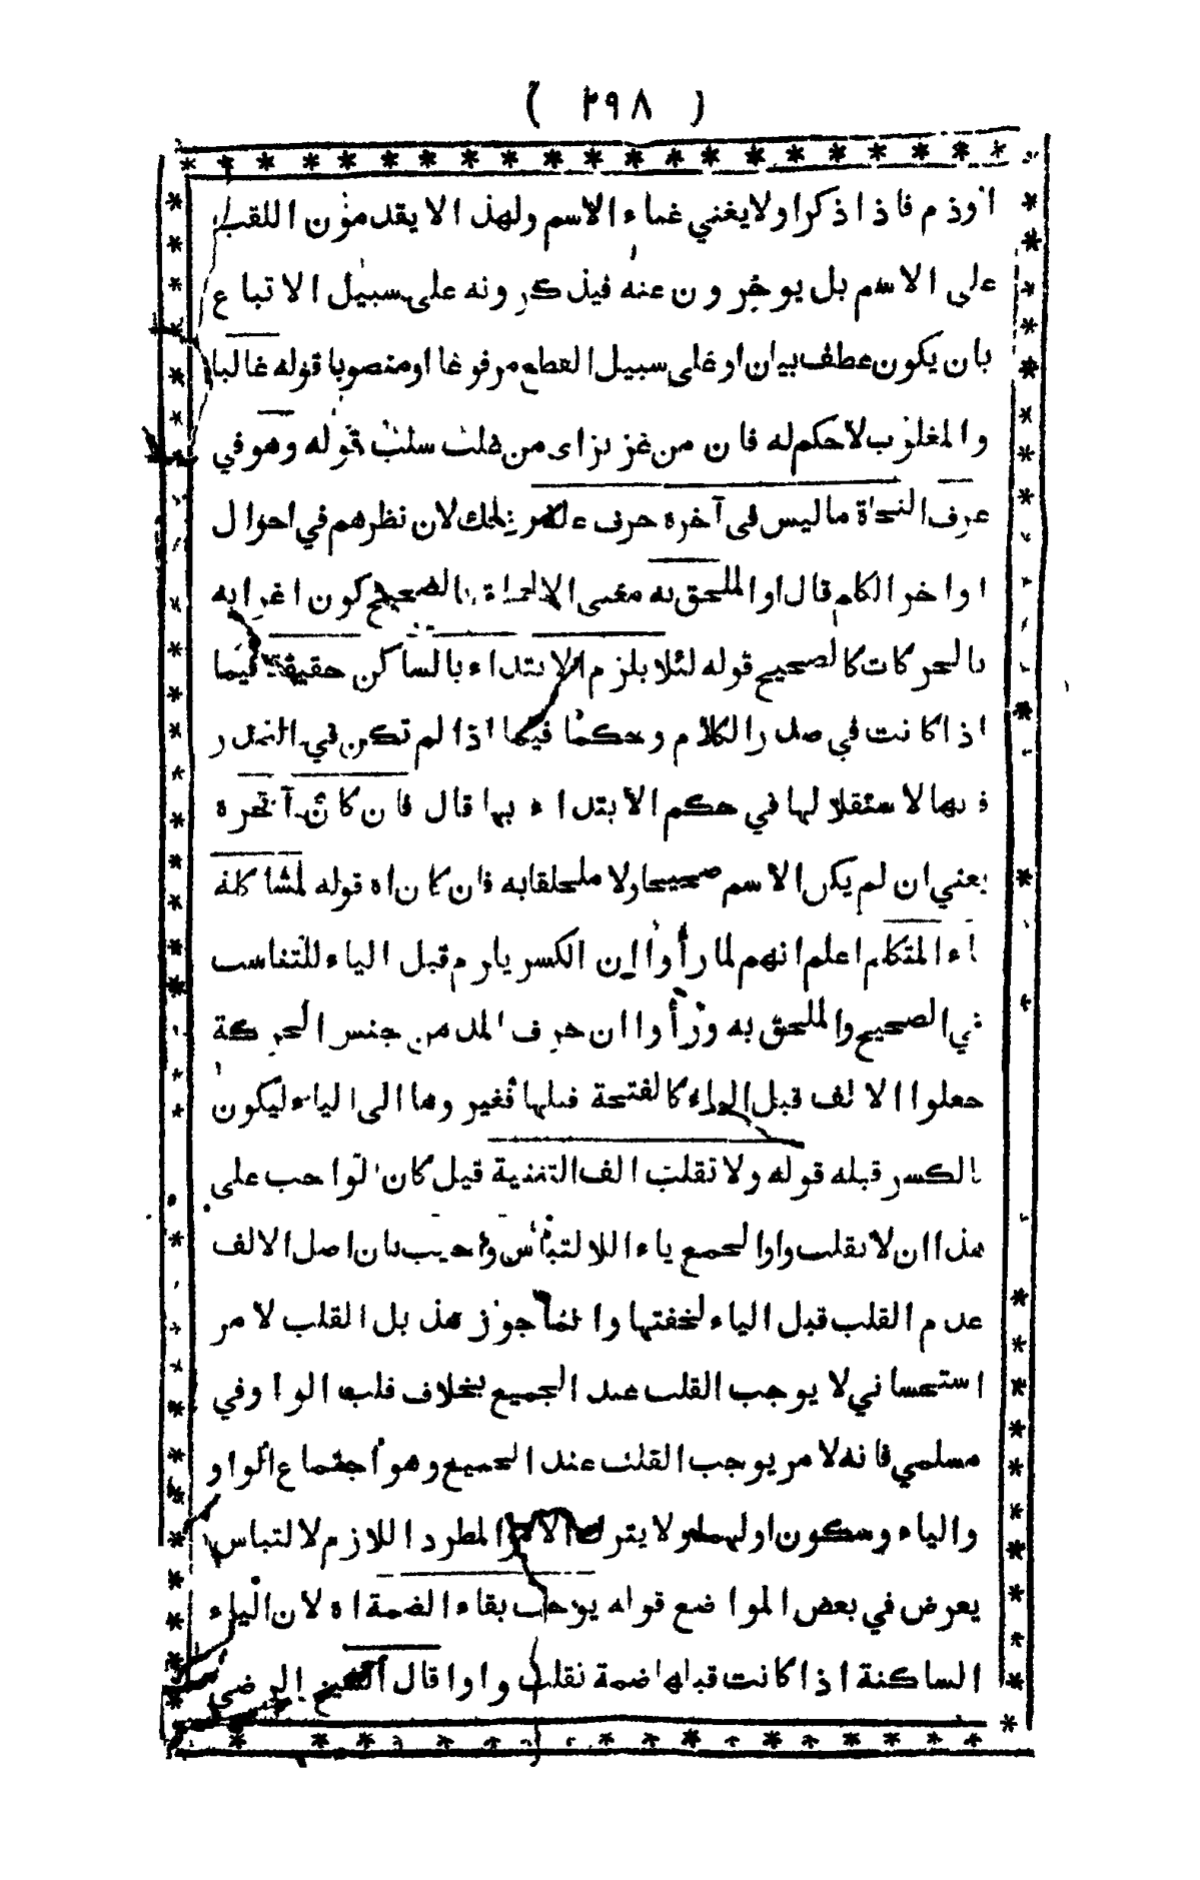 ( ٢٩٨ )
او ذم فاذا ذكرا ولا يغني غناء الاسم ولهذا لا يقدمون اللقب
على الاسم بل يوخرون عنه فيذكرونه على سبيل الاتباع
بان يكون عطف بيان او على سبيل القطع مرفوعا او منصوبا قوله غالبا
والمغلوب لا حكم له فان من عز بزاى من غلب سلب قوله وهو في
عرف النحاة ما ليس في آخره حرف علة لان نظرهم في احوال
اواخر الكلم قال او الملحق به معنى الالحاق بالصحيح كون اعرابه
بالحركات كالصحيح قوله لئلا يلزم الابتداء بالساكن حقيقة فيما
اذا كانت في صدر الكلام وحكما فيما اذا لم تكن في الصدر
فيها لاستقلالها في حكم الابتداء بها قال فان كان آخره
يعني ان لم يكن الاسم صحيحا ولا ملحقا به فان كان اه قوله لمشاكلة
ياء المتكلم اعلم انهم لما رأوا ان الكسر يلزم قبل الياء للتناسب
في الصحيح والملحق به ورأوا ان حرف المد من جنس الحركة
جعلوا الالف قبل الياء كالفتحة قبلها فغير وها الى الياء ليكون
بالكسر قبله قوله ولا تقلب الف التثنية قيل كان الواجب على
هذا ان لا يقلب واو الجمع ياء اللالتباس واجيب بان اصل الالف
عدم القلب قبل الياء لخفتها وانما جوز هذيل القلب لامر
استحساني لا يوجب القلب عند الجميع بخلاف قلب الواو في
مسلمي فانه لامر يوجب القلب عند الجميع وهو اجتماع الواو
والياء وسكون اولهما ولا يترك الامر المطرد اللازم لالتباس
يعرض في بعض المواضع قوله يوجب بقاء الضمة اه لان الياء
الساكنة اذا كانت قبلها ضمة تقلب واوا قال الشيخ الرضي